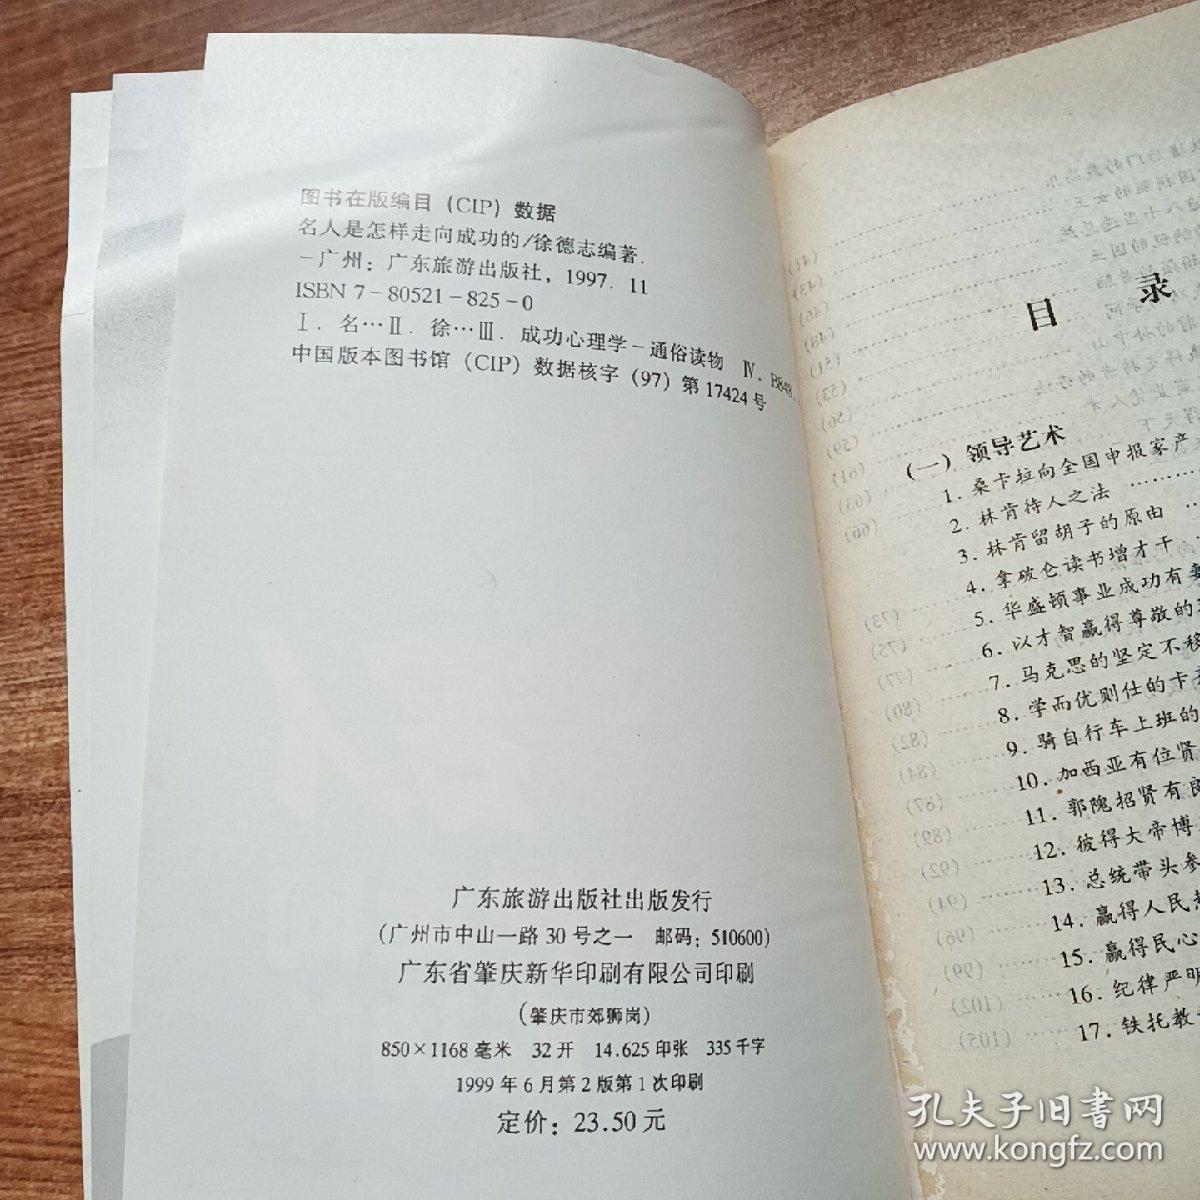 图书在版编目（CIP）数据
名人是怎样走向成功的/徐德志编著.
－广州：广东旅游出版社，1997.11
ISBN 7－80521－825－0
Ⅰ.名…Ⅱ.徐…Ⅲ.成功心理学－通俗读物 Ⅳ.B848.
中国版本图书馆（CIP）数据核字（97）第17424号
广东旅游出版社出版发行
(广州市中山一路30号之一 邮码：510600)
广东省肇庆新华印刷有限公司印刷
(肇庆市郊狮岗)
850×1168毫米 32开 14.625印张 335千字
1999年6月第2版第1次印刷
定价：23.50元
目 录
(一) 领导艺术
1. 桑卡拉向全国申报家产
2. 林肯待人之法
3. 林肯留胡子的原由
4. 拿破仑读书增才干
5. 华盛顿事业成功有
6. 以才智赢得尊敬的
7. 马克思的坚定不移
8. 学而优则仕的卡
9. 骑自行车上班的
10. 加西亚有位贤
11. 郭隗招贤有良
12. 彼得大帝博
13. 总统带头参
14. 赢得人民
15. 赢得民心
16. 纪律严明
17. 铁托教
孔夫子旧书网
www.kongfz.com